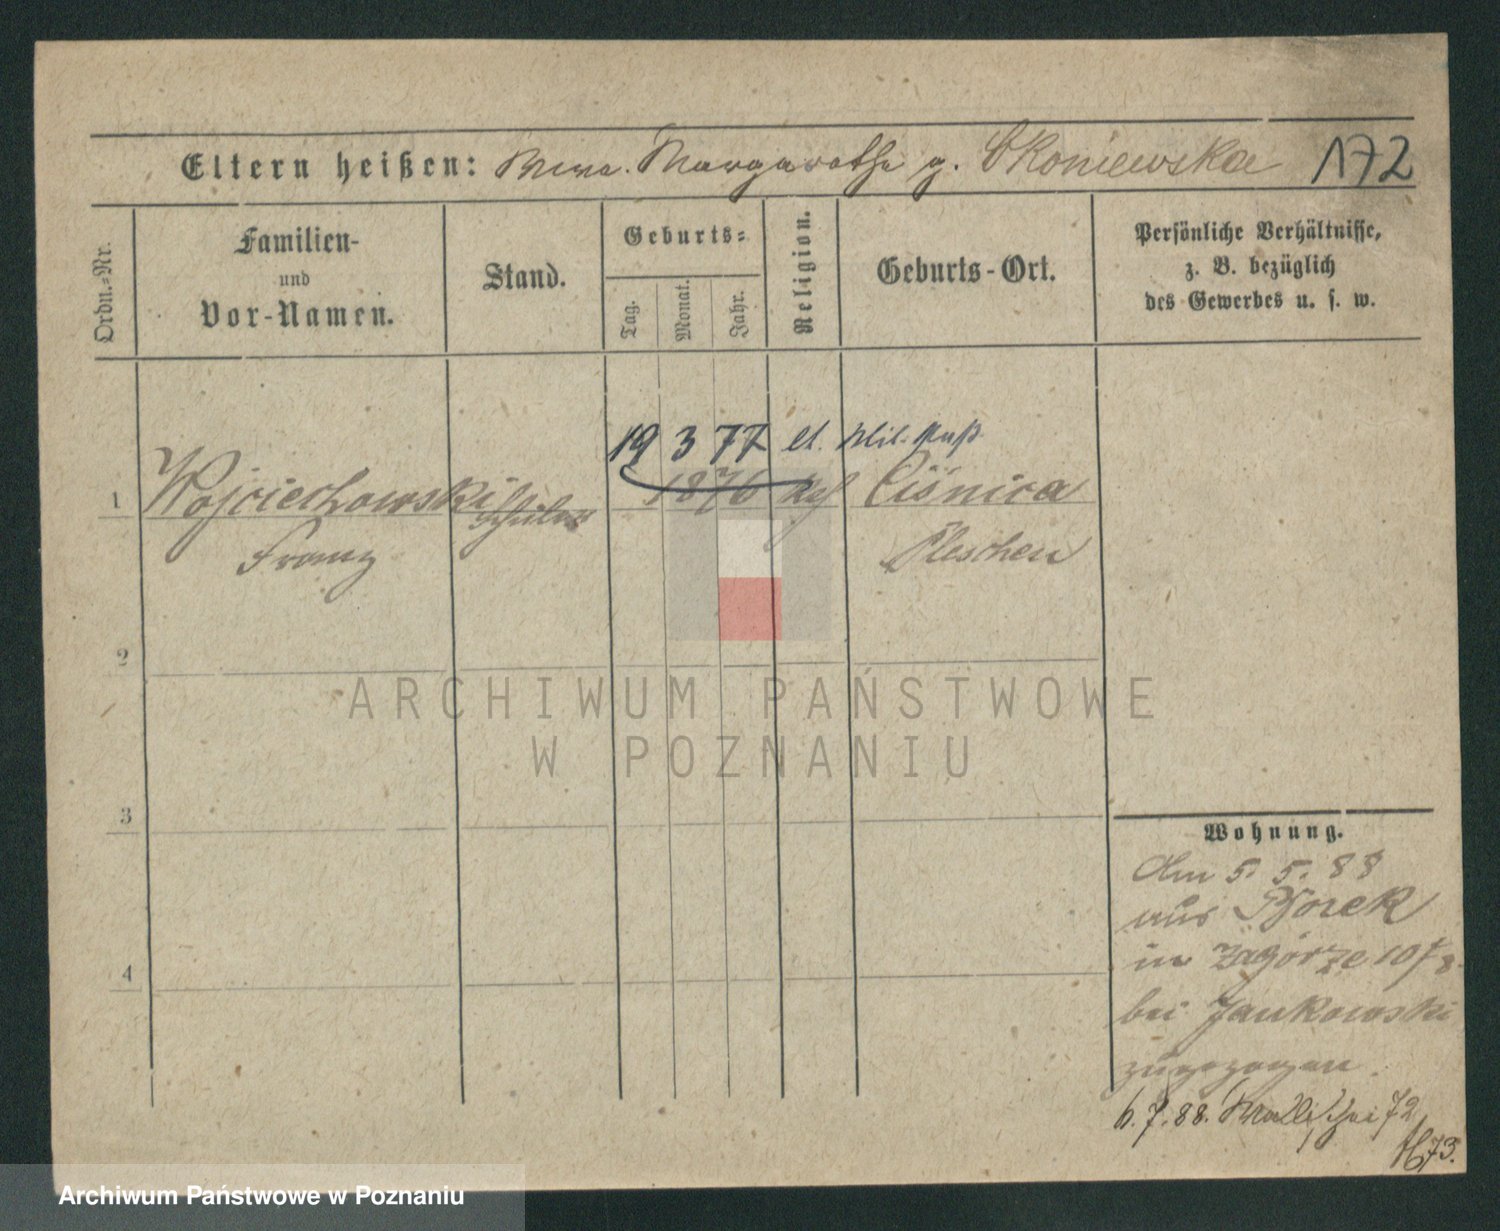 Eltern heißen: Wwe. Margarethe g. Skoniewska 172
Ordn.-Nr.
Familien-
und
Vor-Namen.
Stand.
Geburts-
Tag.
Monat.
Jahr.
Religion.
Geburts-Ort.
Persönliche Verhältnisse,
z. B. bezüglich
des Gewerbes u. s. w.
19 3 77 lt. Mil. Paß
1 Wojciechowski Schüler 1876 kath Cisnica
Franz Pleschen
2
3
4
Wohnung.
Am 5. 5. 88
aus Borek
in Zagórze 10/
bei Jankowski
zugezogen
6. 7. 88. 72
73.
ARCHIWUM PAŃSTWOWE
W POZNANIU
Archiwum Państwowe w Poznaniu